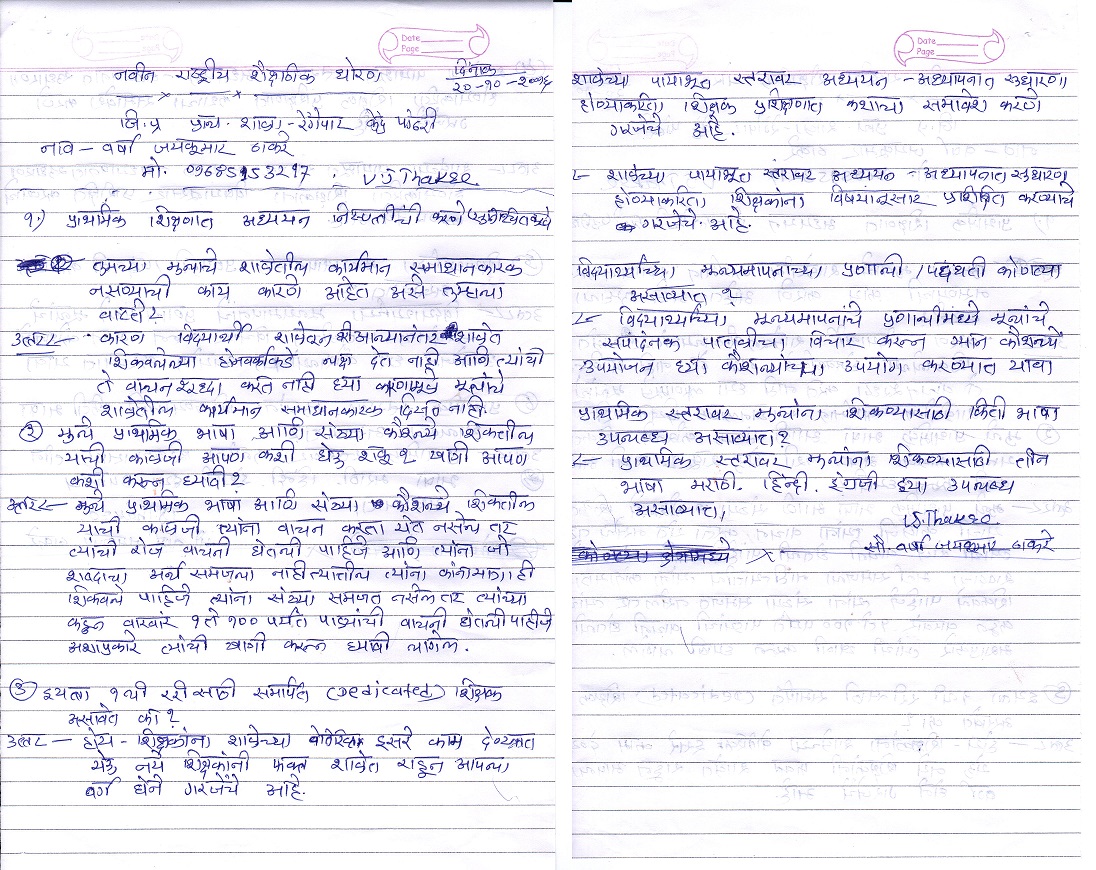 Date
Page
नवीन राष्ट्रीय शैक्षणिक धोरण
दिनांक
२०-१०-२०१५
जि.प प्राथ. शाळा - रेंगेपार केंद्र पांढरी
नाव - वर्षा जयकुमार ठाकरे
मो. 09685153297 V.J.Thakre
१.) प्राथमिक शिक्षणात अध्ययन निष्पत्तीची
१ - तुमच्या मुलाचे शाळेतील कार्यमान समाधानकारक
नसल्याची काय कारणे आहेत असे तुम्हाला
वाटते?
उत्तर - कारण विद्यार्थी शाळेतून घरी आल्यानंतर शाळेत
शिकवलेल्या होमवर्ककडे लक्ष देत नाही आणि त्याची
ते वाचन सुध्दा करत नाही ह्या कारणामुळे मुलाचे
शाळेतील कार्यमान समाधानकारक दिसून नाही.
२ मुले प्राथमिक भाषा आणि संख्या कौशल्ये शिकतील
याची काळजी आपण कशी घेऊ शकू? खात्री आपण
कशी करून घ्यावी?
उत्तर - मुले प्राथमिक भाषा आणि संख्या कौशल्ये शिकतील
याची काळजी. त्यांना वाचन करता येत नसेल तर
त्यांची रोज वाचनी घेतली पाहिजे आणि त्यांना जो
शब्दाचा अर्थ समजला नाही त्यातील त्यांना ही
शिकवले पाहिजे त्यांना संख्या समजत नसेल तर त्यांच्या
कडून वारंवार १ ते १०० पर्यंत पाड्यांची वाचनी घेतली पाहीजे
अशाप्रकारे त्यांची खात्री करून घ्यावी लागेल.
३ इयत्ता १ली २री साठी समर्पित (Dedicated) शिक्षक
असावेत का?
उत्तर - होय - शिक्षकांना शाळेच्या दुसरे काम देण्यात
येऊ नये शिक्षकांनी फक्त शाळेत राहून आपला
वर्ग घेणे गरजेचे आहे.
Date
Page
शाळेच्या पायाभूत स्तरावर अध्ययन - अध्यापनात सुधारणा
होण्याकरिता शिक्षक प्रशिक्षणात कशाचा समावेश करणे
गरजेचे आहे.
- शाळेच्या पायाभूत स्तरावर अध्ययन - अध्यापनात सुधारणा
होण्याकरिता शिक्षकांना विषयानुसार प्रशिक्षित करण्याचे
गरजेचे आहे.
विद्यार्थ्यांच्या मूल्यमापनाच्या प्रणाली / पध्दती कोणत्या
असाव्यात?
- विद्यार्थ्यांच्या मूल्यमापनाचे प्रणालीमध्ये मूलांचे
संपादनूक पातळीचा विचार करून ज्ञान कौशल्ये
उपयोजन ह्या कौशल्यांचा उपयोग करण्यात यावा
प्राथमिक स्तरावर मुलांना शिकण्यासाठी किती भाषा
उपलब्ध असाव्यात?
- प्राथमिक स्तरावर मुलांना शिकण्यासाठी तीन
भाषा मराठी. हिन्दी. इंग्रजी ह्या उपलब्ध
असाव्यात,
V.J.Thakre
सौ. वर्षा जयकुमार ठाकरे